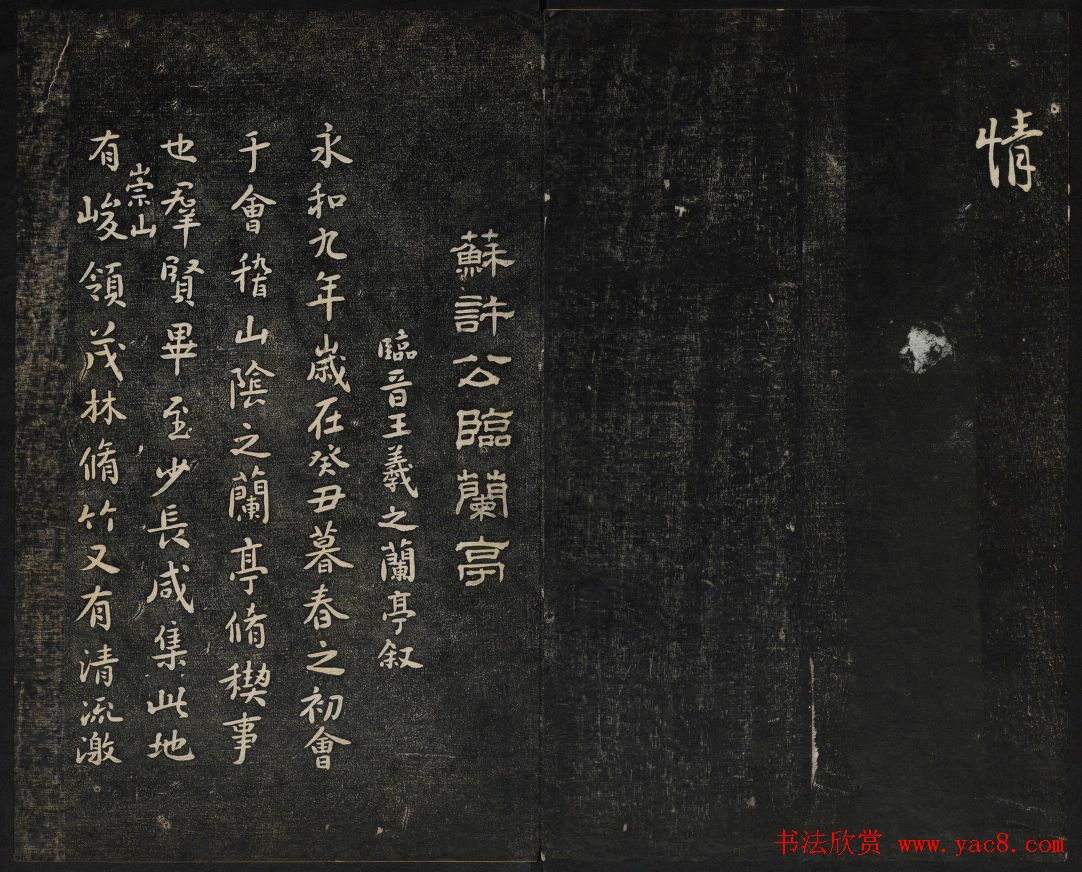 情
蘇許公臨蘭亭
臨晉王羲之蘭亭叙
永和九年歲在癸丑暮春之初會
于會稽山陰之蘭亭脩稧事
也羣賢畢至少長咸集此地
崇山
有峻領茂林脩竹又有清流激
书法欣赏 www.yac8.com